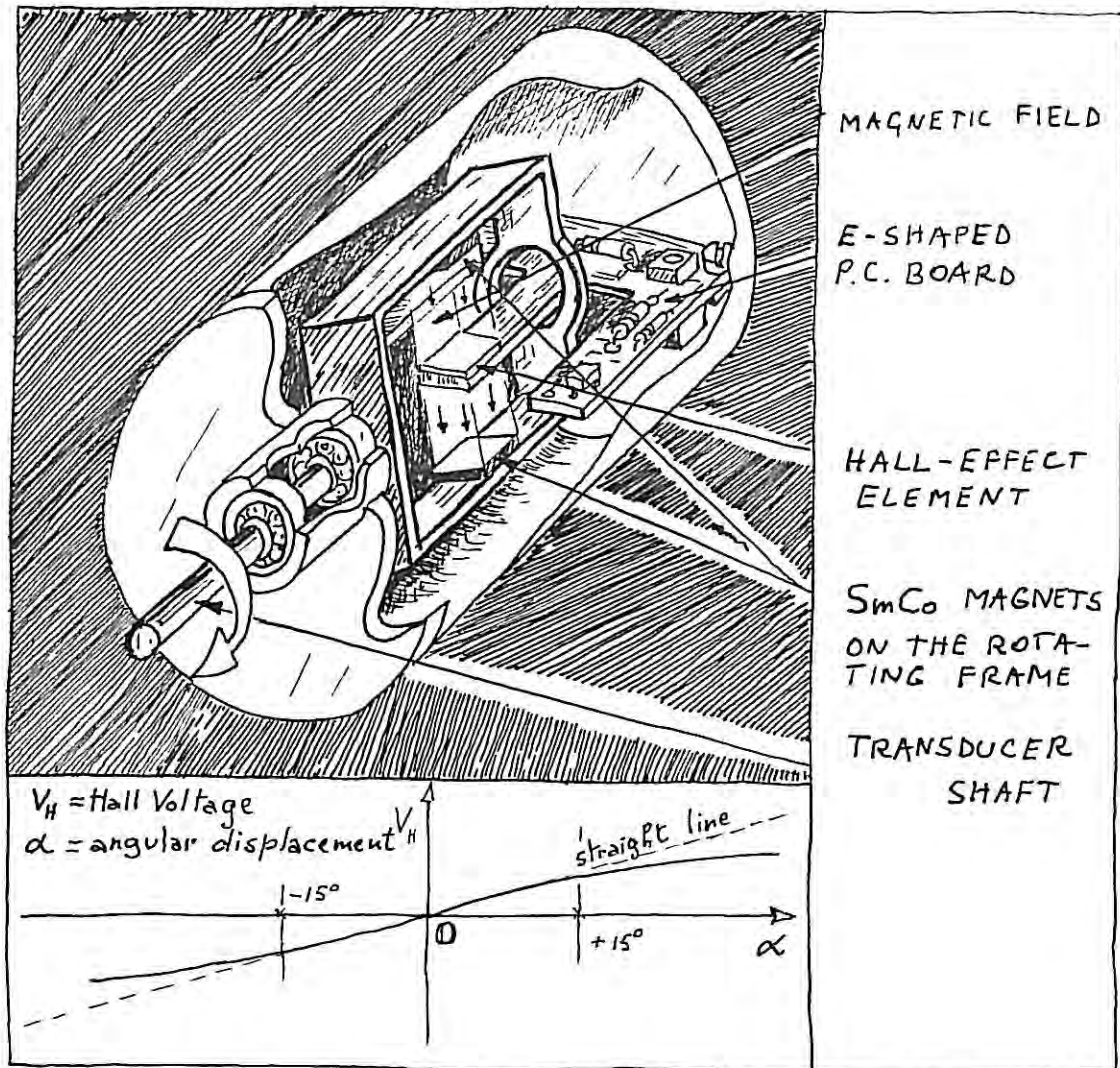 MAGNETIC FIELD
E-SHAPED
P.C. BOARD
HALL-EFFECT
ELEMENT
SmCo MAGNETS
ON THE ROTA-
TING FRAME
TRANSDUCER
SHAFT
V_H = Hall Voltage
α = angular displacement
V_H
straight line
-15°
0
+15°
α